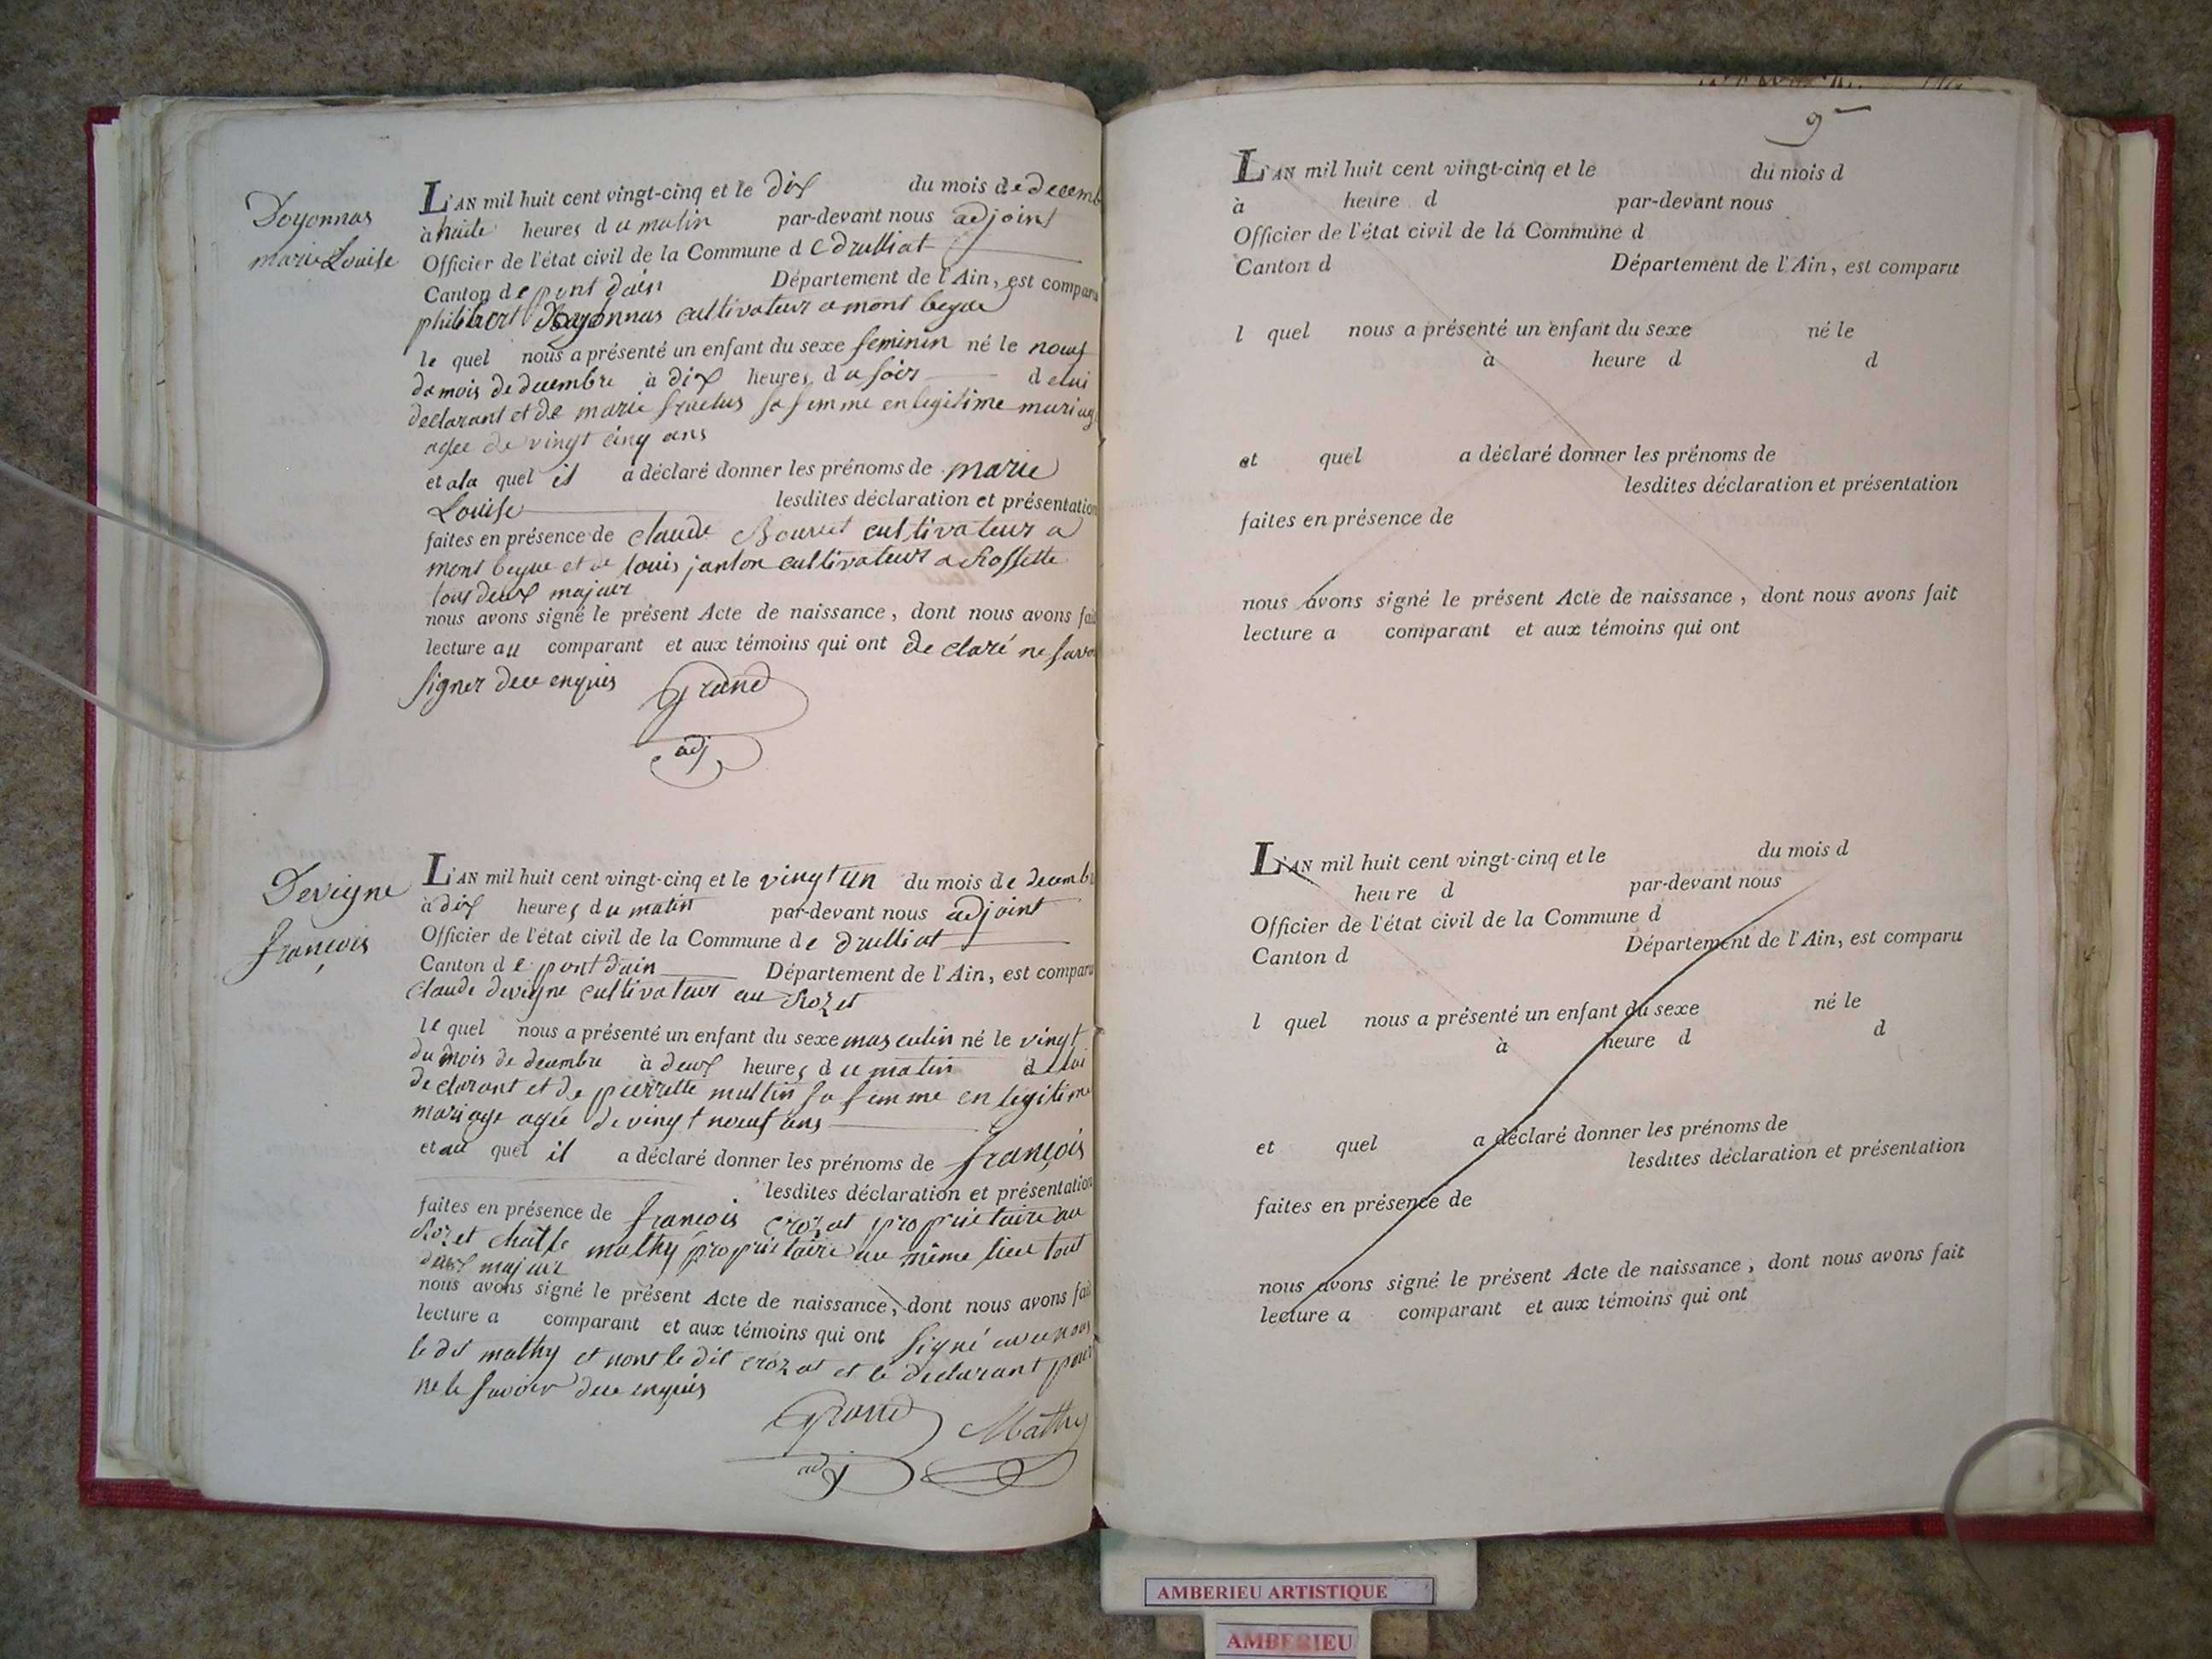 Doyonnas
marie Louise
L'AN mil huit cent vingt-cinq et le dix du mois de decemb
à huite heures du matin par-devant nous adjoint
Officier de l'état civil de la Commune de druilliat
Canton de pont dain Département de l'Ain, est comparu
philibert Doyonnas cultivateur a mont begue
le quel nous a présenté un enfant du sexe feminin né le neuf
du mois de decembre à dix heures du soir de lui
declarant et de marie fruclus sa femme en legitime mariag
agee de vingt cinq ans
et a la quel il a déclaré donner les prénoms de marie
Louise lesdites déclaration et présentation
faites en présence de claude cultivateur a
mont begue et de louis janton cultivateur a Rossette
tous deux majeur
nous avons signé le présent Acte de naissance, dont nous avons fait
lecture au comparant et aux témoins qui ont de claré ne savoi
signer de ce enquis Grand
adj
Devigne
françois
L'AN mil huit cent vingt-cinq et le vingt un du mois de decemb
à dix heures du matin par-devant nous adjoint
Officier de l'état civil de la Commune de druilliat
Canton de pont dain Département de l'Ain, est comparu
claude devigne cultivateur au Rozet
le quel nous a présenté un enfant du sexe masculin né le vingt
du mois de decembre à deux heures du matin de lui
declarant et de pierrette multin sa femme en legitime
mariage agée de vingt neuf ans
et au quel il a déclaré donner les prénoms de françois
lesdites déclaration et présentation
faites en présence de françois crozat proprietaire au
Rozet mathy proprietaire au même lieu tout
deux majeur
nous avons signé le présent Acte de naissance, dont nous avons fait
lecture a comparant et aux témoins qui ont signé avec nous
le dit mathy et nont le dit crozat et le declarant pour
ne le savoir de ce enquis
Grand Mathy
adj
9
L'AN mil huit cent vingt-cinq et le du mois d
à heure d par-devant nous
Officier de l'état civil de la Commune d
Canton d Département de l'Ain, est comparu
l quel nous a présenté un enfant du sexe né le
à heure d d
et quel a déclaré donner les prénoms de
lesdites déclaration et présentation
faites en présence de
nous avons signé le présent Acte de naissance, dont nous avons fait
lecture a comparant et aux témoins qui ont
L'AN mil huit cent vingt-cinq et le du mois d
heure d par-devant nous
Officier de l'état civil de la Commune d
Canton d Département de l'Ain, est comparu
l quel nous a présenté un enfant du sexe né le
à heure d d
et quel a déclaré donner les prénoms de
lesdites déclaration et présentation
faites en présence de
nous avons signé le présent Acte de naissance, dont nous avons fait
lecture a comparant et aux témoins qui ont
AMBERIEU ARTISTIQUE
AMBERIEU